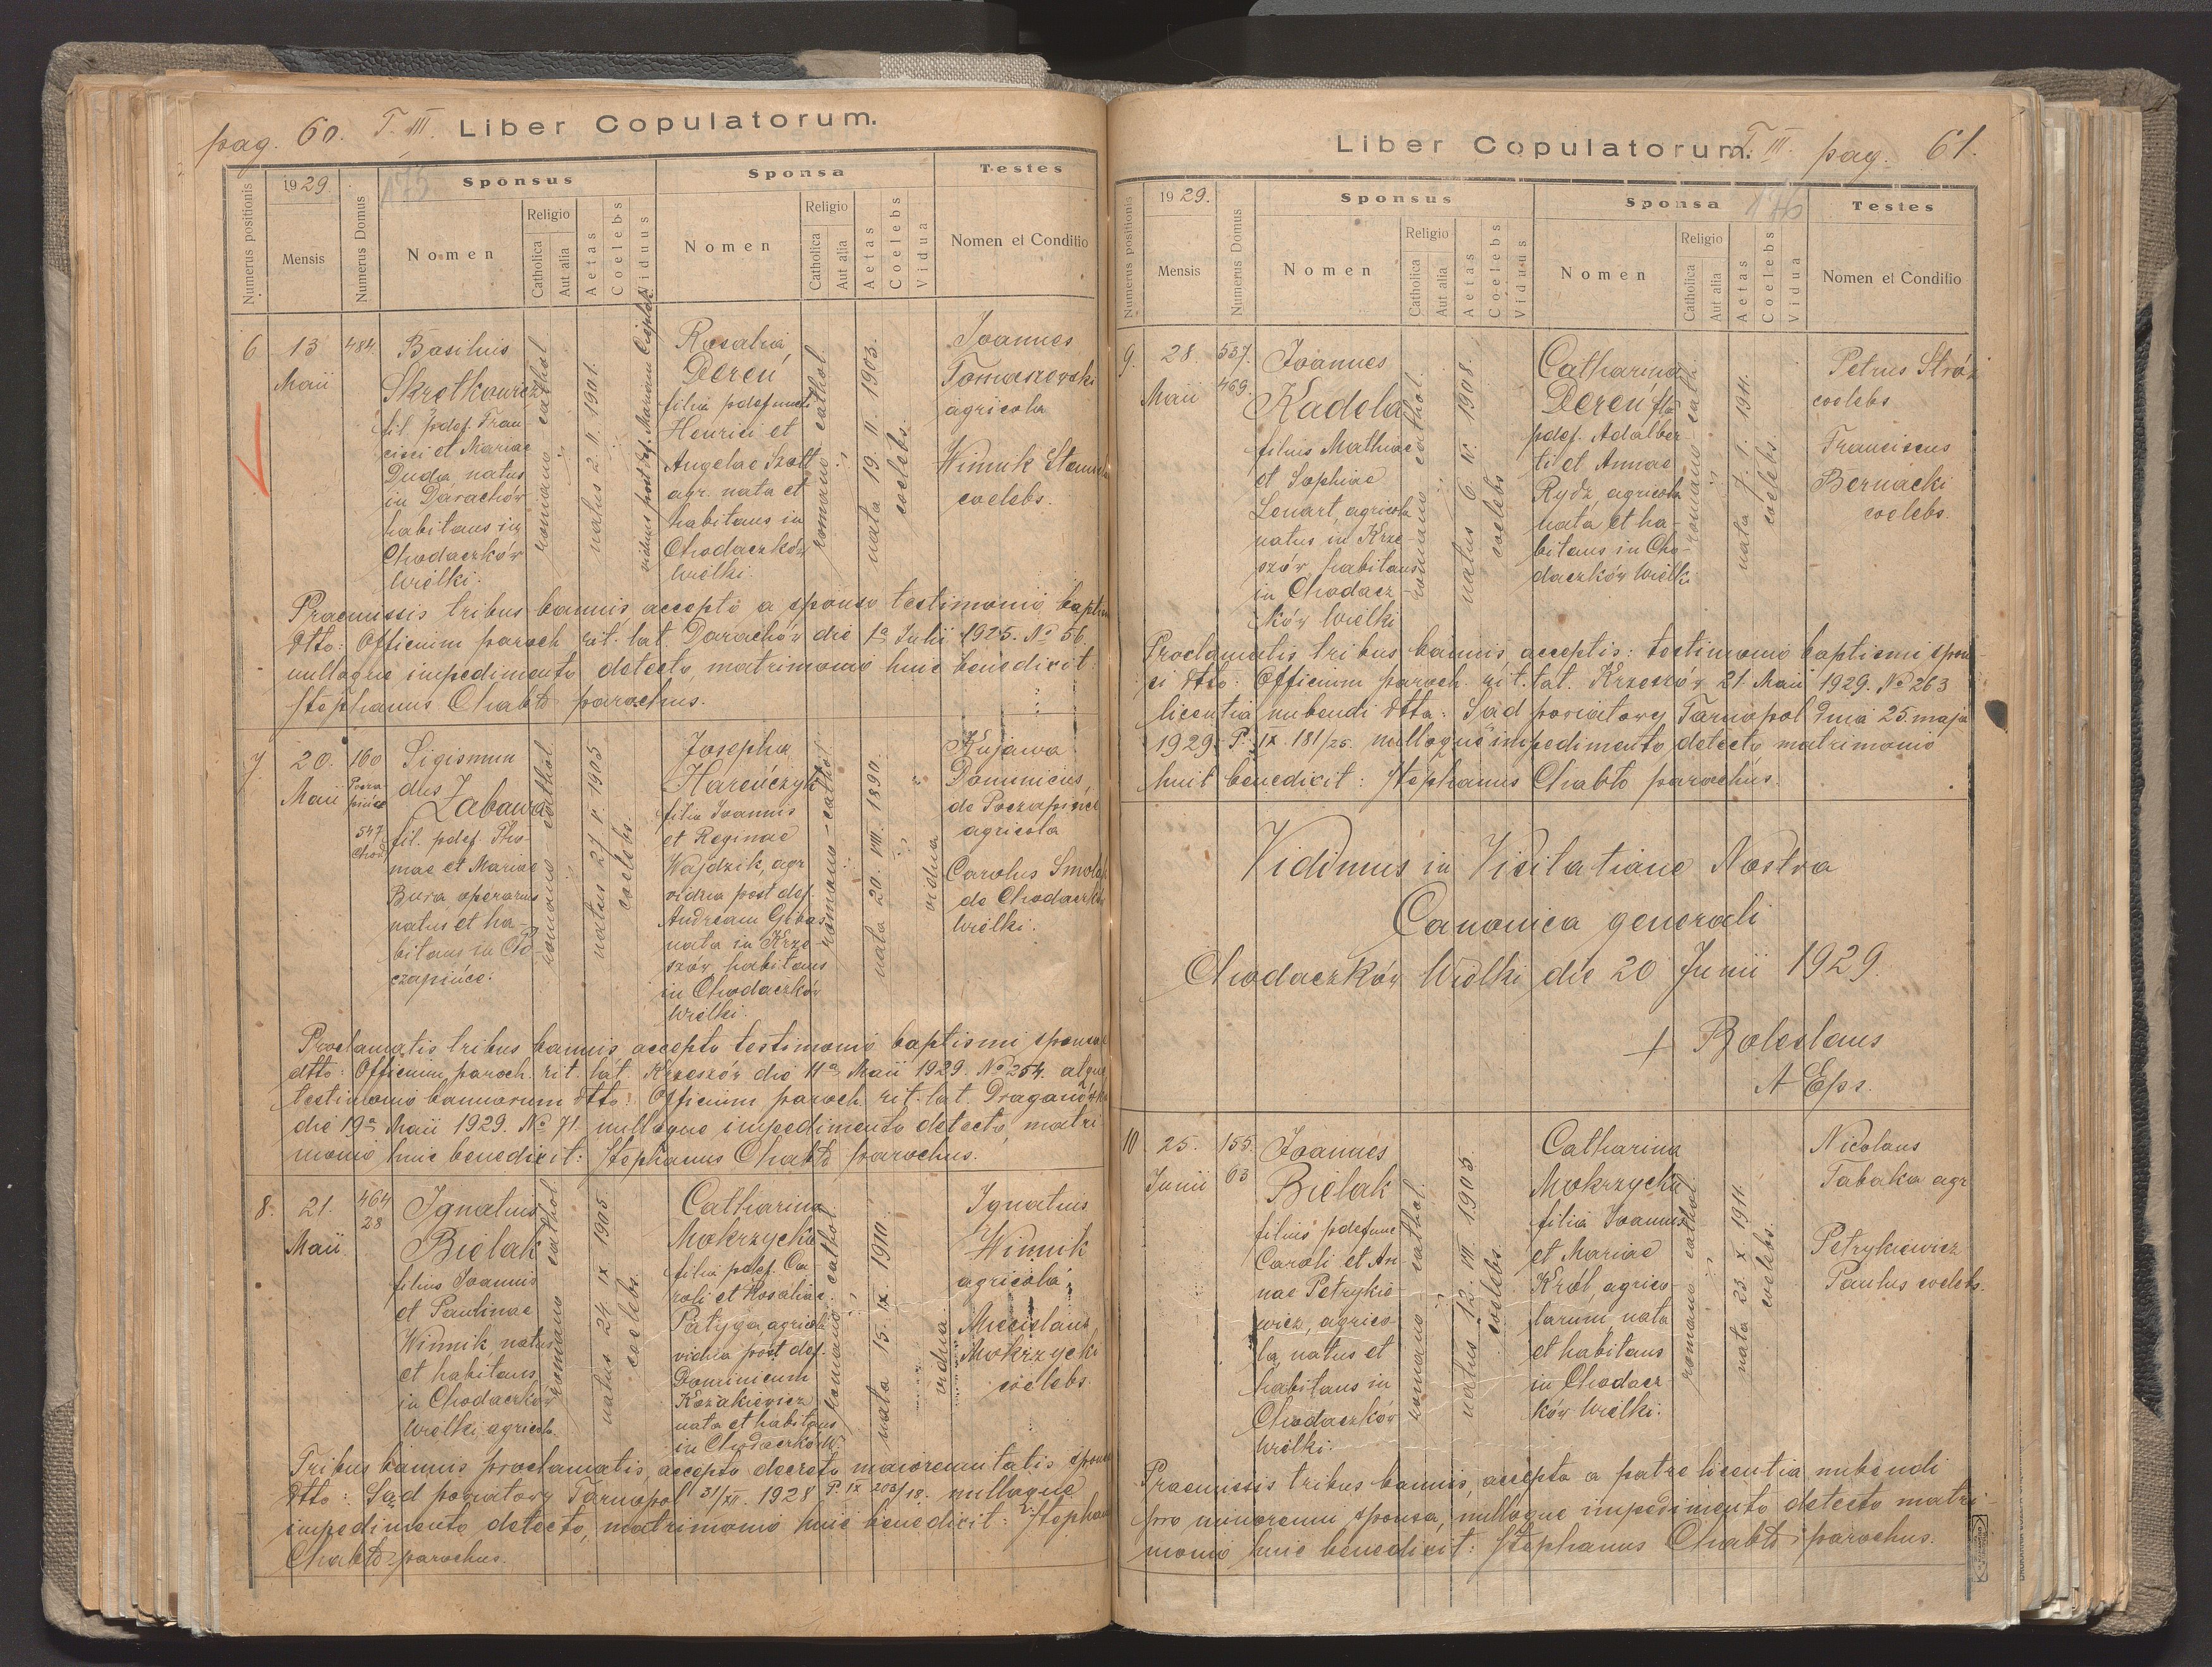 pag. 60. T. III. Liber Copulatorum.
Numerus positionis
1929
Mensis
Numerus Domus
175
Sponsus
Nomen
Religio
Catholica
Aut alia
Aetas
Coelebs
Viduus
Sponsa
Nomen
Religio
Catholica
Aut alia
Aetas
Coelebs
Vidua
Testes
Nomen et Conditio
6
13
Maii
484.
Basilius
Skretkowicz
fil. pdef. Fran
cisci et Mariae
Duda, natus
in Darachów
habitans in
Chodaczków
Wielki.
romano cathol.
natus 2. II. 1901.
viduus post def. Mariam
Rosalia
Dereń
filia pdefuncti
Henrici et
Angelae Szott
agr. nata et
habitans in
Chodaczków
Wielki.
romano cathol.
nata 19. II. 1903.
coelebs.
Joannes
Tomaszewski
agricola
Winnik
coelebs.
Praemissis tribus bannis, accepto a sponso testimonio baptismi
dtto: Officium paroch. rit. lat. Darachów die 1a Julii 1925. No 56
nulloque impedimento detecto, matrimonio huic benedixit:
Stephanus Chabło parochus.
7
20.
Maii
160
Pocza
pińce
547
Chod
Sigismun
dus
Zabawa
fil. pdef. Tho
mae et Mariae
Bura operarius
natus et ha-
bitans in Po
czapińce.
romano-cathol.
natus 27. V. 1905
coelebs.
Josepha
Hareńczyk
filia Joannis
et Reginae
Wajdzik, agr.
vidua post def.
Andream Gebas
nata in Krze
szów, habitans
in Chodaczków
Wielki.
romano-cathol.
nata 20. VIII. 1890.
vidua
Kujawa
Dominicus
de Poczapińce
agricola
Carolus
de Chodaczków
Wielki.
Proclamatis tribus bannis, accepto testimonio baptismi sponsae
dtto: Officium paroch. rit. lat. Krzeszów die 11a Maii 1929. No 254. atque
testimonio bannorum dtto: Officium paroch. rit. lat. Draganówka
die 19a Maii 1929. No 71. nulloque impedimento detecto, matri
monio huic benedixit: Stephanus Chabło parochus.
8.
21.
Maii
464
28
Ignatius
Bielak
filius Joannis
et Paulinae
Winnik, natus
et habitans
in Chodaczków
Wielki, agricola.
romano cathol.
natus 24. IX. 1905
coelebs.
Catharina
Mokrzycka
filia pdef. Ca
roli et Rosaliae
Patyga, agricola
vidua post def.
Dominicum
Kozakiewicz
nata et habitans
in Chodaczków W.
romano cathol.
nata 15. IX. 1910.
vidua
Ignatius
Winnik
agricola
Miecislaus
Mokrzycki
coelebs.
Tribus bannis proclamatis, accepto decreto maiorennitatis sponsae
dtto: Sąd powiatowy Tarnopol 31/XII. 1928 P. IX 203/18. nulloque
impedimento detecto, matrimonio huic benedixit: Stephanus
Chabło parochus.
Liber Copulatorum. T. III. pag. 61.
Numerus positionis
1929.
Mensis
Numerus Domus
Sponsus
Nomen
Religio
Catholica
Aut alia
Aetas
Coelebs
Viduus
Sponsa
176
Nomen
Religio
Catholica
Aut alia
Aetas
Coelebs
Vidua
Testes
Nomen et Conditio
9.
28.
Maii
557.
469.
Joannes
Kadela
filius Mathiae
et Sophiae
Lenart, agricola
natus in Krze-
szów, habitans
in Chodacz-
ków Wielki
romano cathol.
natus 6. IV. 1908.
coelebs
Catharina
Dereń fla
pdef. Adalber
ti et Annae
Rydz, agricola
nata et ha-
bitans in Cho-
daczków Wielki
romano-cath.
nata 7. I. 1911.
coelebs.
Petrus Stróż
coelebs
Franciscus
Bernacki
coelebs.
Proclamatis tribus bannis, acceptis: testimonio baptismi spon-
si dtto: Officium paroch. rit. lat. Krzeszów 21. Maii 1929. No 263
licentia nubendi dtta: Sąd powiatowy Tarnopol dnia 25. maja
1929. P. IX. 181/25. nulloque impedimento detecto matrimonio
huic benedixit: Stephanus Chabło parochus.
Vidimus in Visitatione Nostra
Canonica generali
Chodaczków Wielki die 20 Junii 1929.
+ Boleslaus
A Eps.
10
25.
Junii
155.
63
Joannes
Bielak
filius pdefunc
Caroli et An
nae Petrykie
wicz, agrico-
la, natus et
habitans in
Chodaczków
Wielki.
romano cathol.
natus 12. VII. 1905.
coelebs.
Catharina
Mokrzycka
filia Joannis
et Mariae
Król, agrico-
larum, nata
et habitans
in Chodacz-
ków Wielki.
romano cathol.
nata 25. X. 1911.
coelebs.
Nicolaus
Tabaka agr
Petrykiewicz
Paulus coelebs.
Praemissis tribus bannis, accepta a patre licentia nubendi
pro minorenni sponsa, nulloque impedimento detecto matri-
monio huic benedixit: Stephanus Chabło parochus.